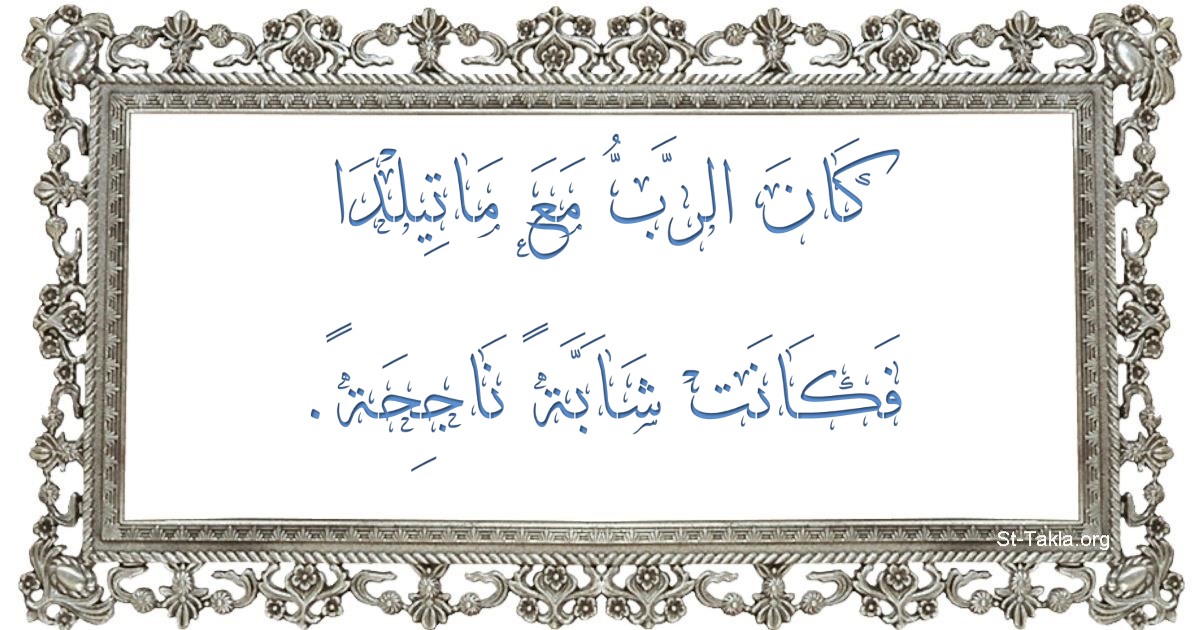 كَانَ الرَّبُّ مَعَ مَاتِيلْدَا
فَكَانَتْ شَابَّةً نَاجِحَةً.
St-Takla.org